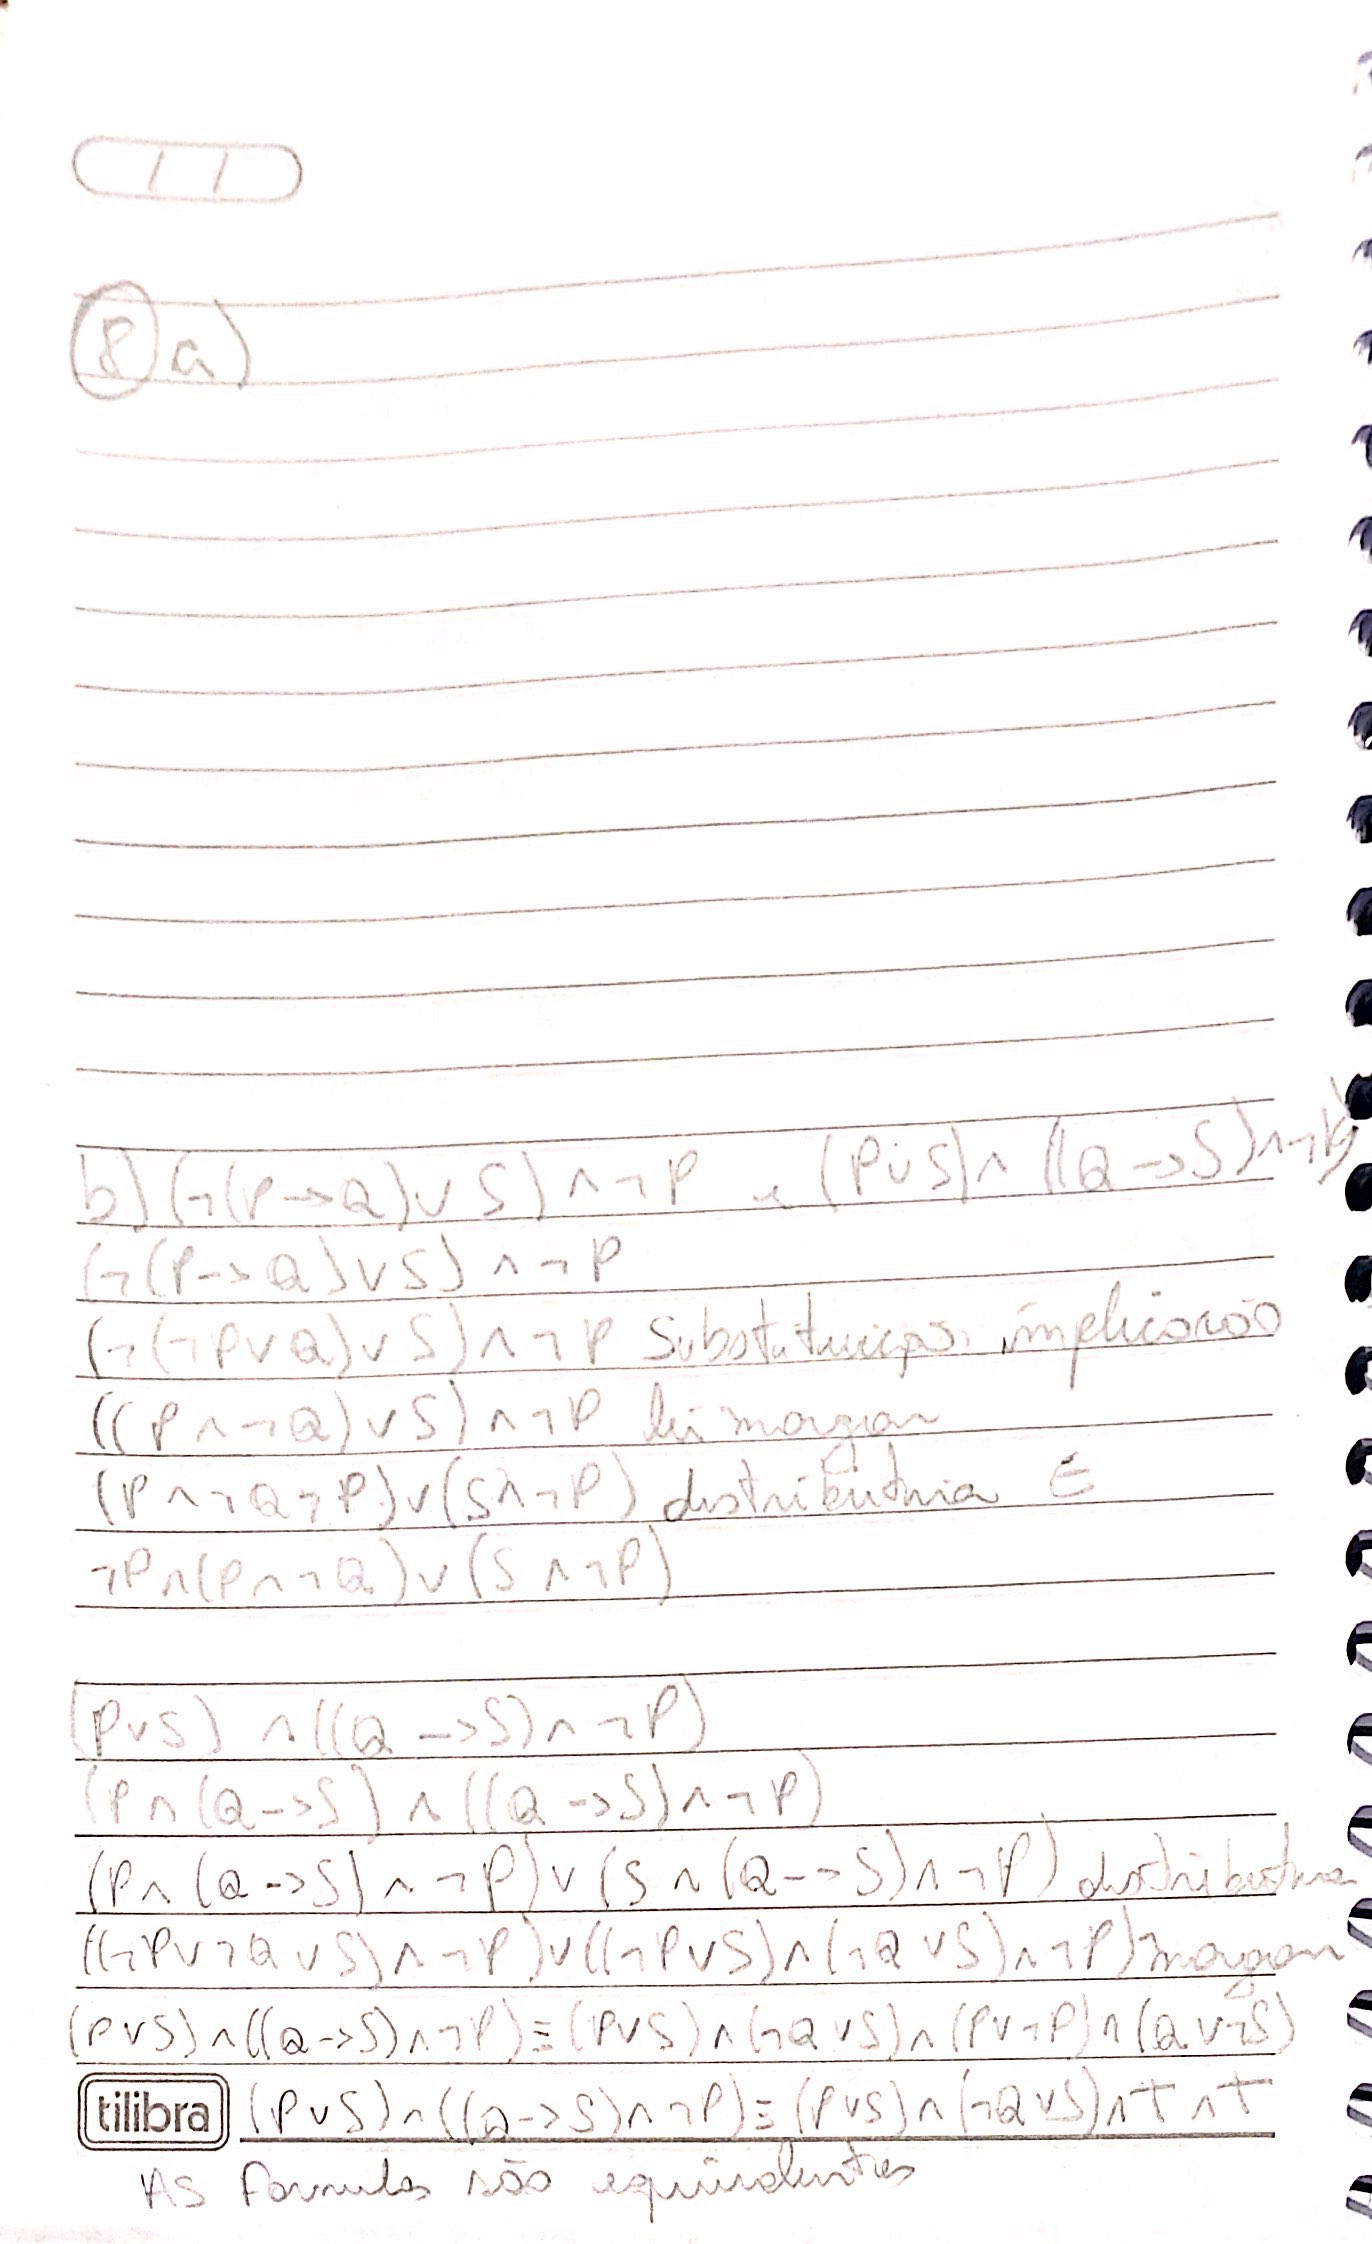 / /
8 a)
b) (¬(P→Q)∨S)∧¬P e (P∨S)∧((Q→S)∧¬P)
(¬(P→Q)∨S)∧¬P
(¬(¬P∨Q)∨S)∧¬P Substituição implicação
((P∧¬Q)∨S)∧¬P lei morgan
(P∧¬Q¬P)∨(S∧¬P) distributiva E
¬P∧(P∧¬Q)∨(S∧¬P)
(P∨S)∧((Q→S)∧¬P)
(P∧(Q→S)∧((Q→S)∧¬P)
(P∧(Q→S)∧¬P)∨(S∧(Q→S)∧¬P) distributiva
((¬P∨¬Q∨S)∧¬P)∨((¬P∨S)∧(¬Q∨S)∧¬P) morgan
(P∨S)∧((Q→S)∧¬P)≡(P∨S)∧(¬Q∨S)∧(P∨¬P)∧(Q∨¬S)
tilibra (P∨S)∧((Q→S)∧¬P)≡(P∨S)∧(¬Q∨S)∧T∧T
AS formulas são equivalentes